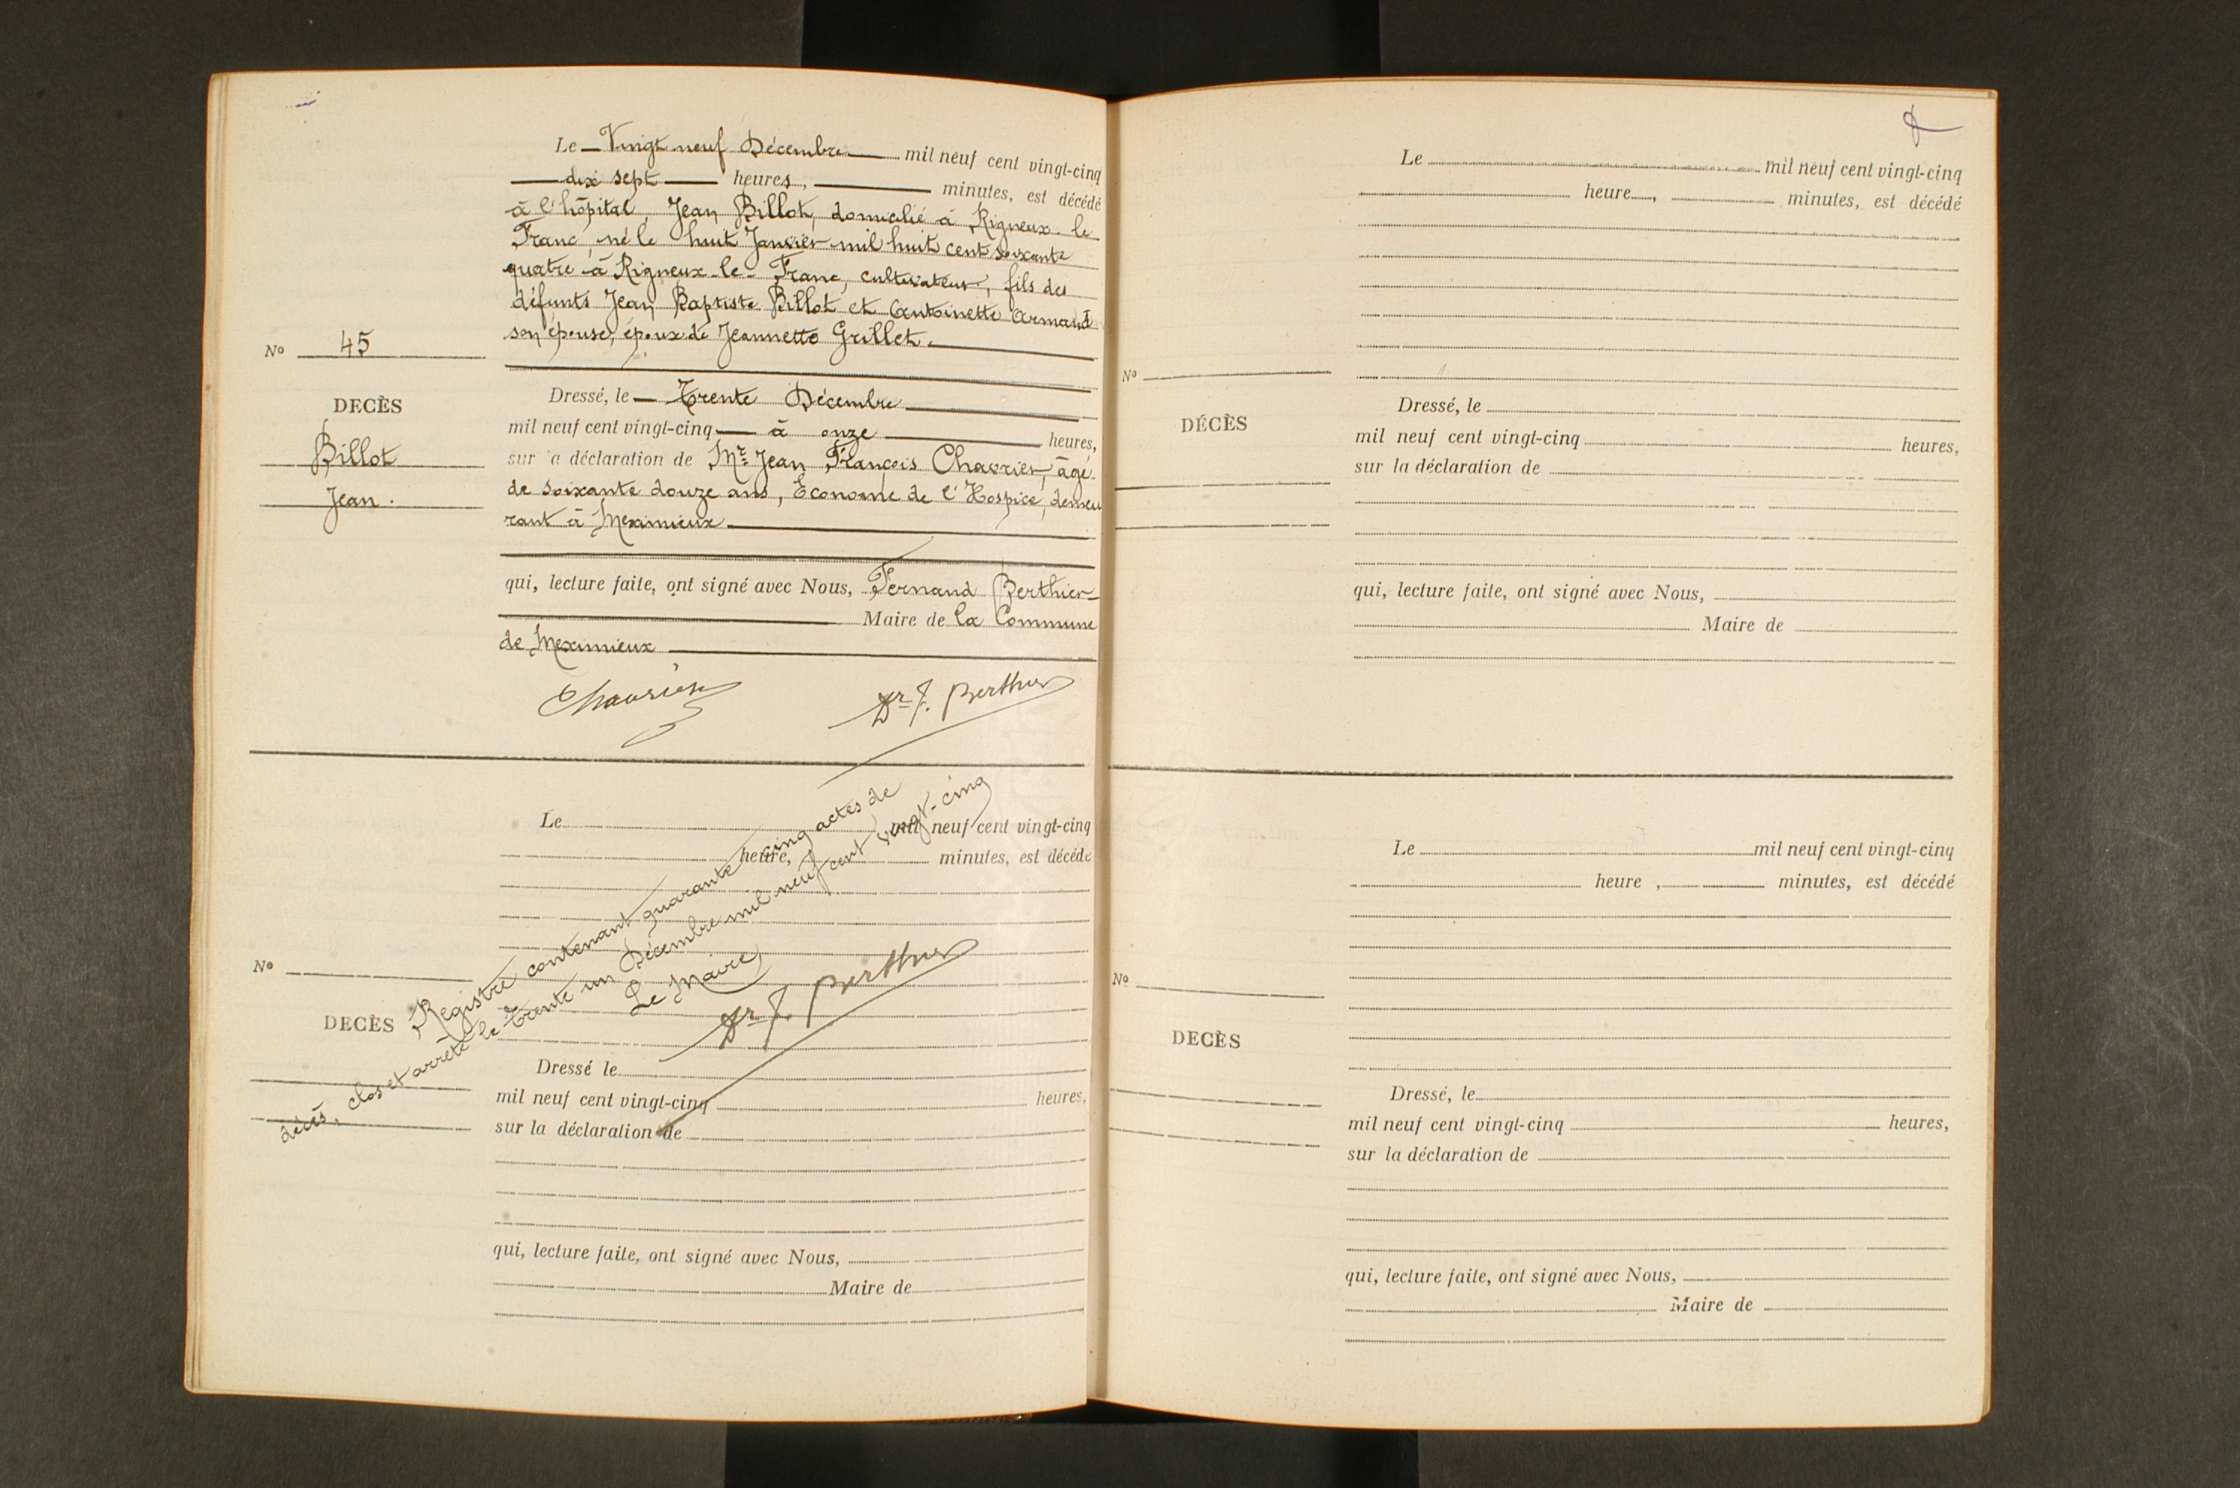 Le Vingt neuf Décembre mil neuf cent vingt-cinq
dix sept heures, minutes, est décédé
à l'hôpital, Jean Billot, domicilié à Rigneux-le
Franc, né le huit Janvier mil huit cent soixante
quatre à Rigneux-le-Franc, cultivateur, fils des
défunts Jean Baptiste Billot et Antoinette Armand
son épouse, époux de Jeannette Grillet.
No 45
DECÈS
Billot
Jean.
Dressé, le Trente Décembre
mil neuf cent vingt-cinq à onze heures,
sur a déclaration de Mr Jean François Chavrier, âgé
de soixante douze ans, Econome de l'Hospice, demeu
rant à Meximieux
qui, lecture faite, ont signé avec Nous, Fernand Berthier
Maire de la Commune
de Meximieux
Chavrier
Dr F. Berthier
Le mil neuf cent vingt-cinq
heure, minutes, est décédé
No
DECÈS
Registre contenant quarante cinq actes de
décès, clos et arrêté le Trente un Décembre mil neuf cent vingt-cinq
Le Maire
Dr F. Berthier
Dressé le
mil neuf cent vingt-cinq heures,
sur la déclaration de
qui, lecture faite, ont signé avec Nous,
Maire de
Le mil neuf cent vingt-cinq
heure, minutes, est décédé
No
DÉCÈS
Dressé, le
mil neuf cent vingt-cinq heures,
sur la déclaration de
qui, lecture faite, ont signé avec Nous,
Maire de
Le mil neuf cent vingt-cinq
heure , minutes, est décédé
No
DECÈS
Dressé, le
mil neuf cent vingt-cinq heures,
sur la déclaration de
qui, lecture faite, ont signé avec Nous,
Maire de